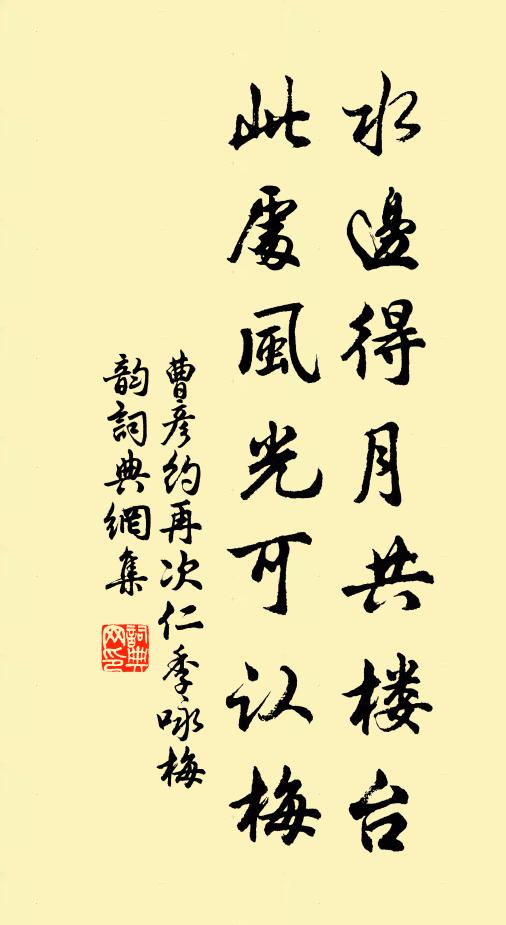 水邊得月共楼台
此處風光可认梅
曹彦约再次仁季咏梅
韵詞典網集
詞典
网印